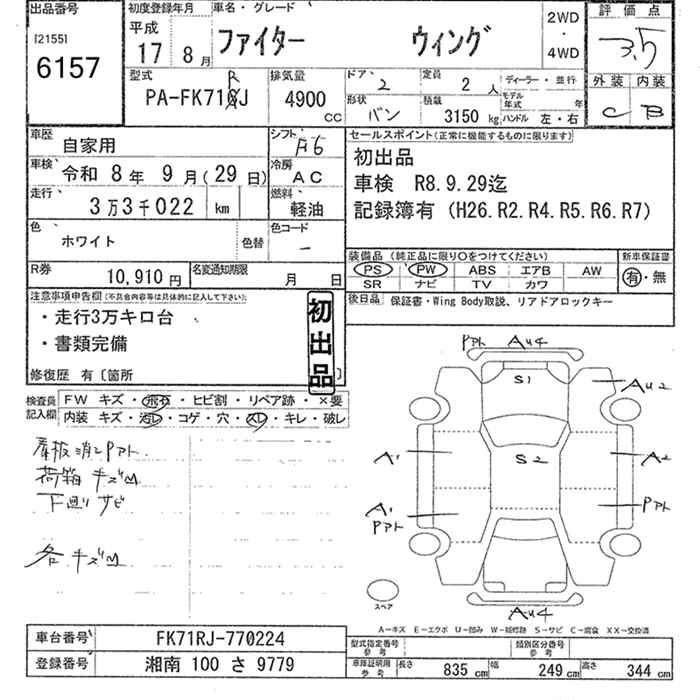 出品番号 初度登録年月 車名・グレード 2WD・4WD 評価点
[2155]
6157
平成17 8月 ファイター ウィング 3.5
型式 PA-FK71RJ
排気量 4900cc
ドア 2 定員 2人 ディーラー・並行
形状 バン 積載 3150kg モデル年式 年 ハンドル 左・右
外装 内装
C B
車歴 自家用
シフト F6
車検 令和8年9月(29日)
冷房 AC
走行 3万3千022 km
燃料 軽油
色 ホワイト 色替
色コード －
R券 10,910円
名変通知期限 月 日
セールスポイント(正常に機能するものに限ります)
初出品
車検 R8.9.29迄
記録簿有 (H26.R2.R4.R5.R6.R7)
装備品 (純正品に限り○をつけてください) 新車保証書
PS PW ABS エアB AW
SR ナビ TV カワ
有・無
後日品 保証書・Wing Body取説、リアドアロックキー
注意事項申告欄(不具合内容等は具体的に記入して下さい)
・走行3万キロ台
・書類完備
修復歴 有〔箇所 〕
初出品
検査員記入欄
FW キズ・飛石・ヒビ割・リペア跡・×要
内装 キズ・汚レ・コゲ・穴・スレ・キレ・破レ
看板消しPアト
荷箱キズM
下廻りサビ
各キズM
Pアト AU4
S1
AU2
A1 S2 A2
A1 Pアト Pアト
AU4
スペア
A－キズ E－エクボ U－凹み W－補修跡 S－サビ C－腐食 XX－交換済
車台番号 FK71RJ-770224
登録番号 湘南 100 さ 9779
型式指定番号 参考 類別区分番号 参考
車庫証明用 参考 長さ 835cm 幅 249cm 高さ 344cm